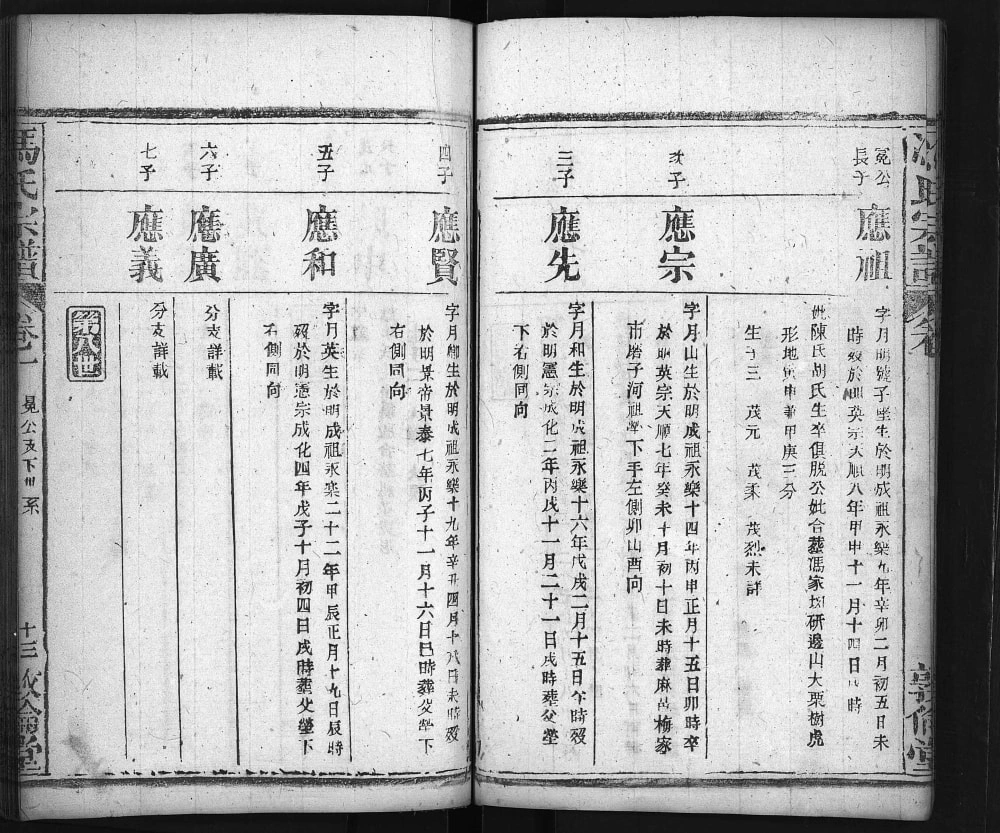 馮氏宗譜
敦倫堂
冕公
長子
應祖
字月明號子　生於明成祖永樂九年辛卯二月初五日未
時歿於明英宗天順八年甲申十一月十四日　時
妣陳氏胡氏生卒俱脫公妣合葬馮家　研邊山大栗樹虎
形地寅申兼甲庚三分
生子三　茂元　茂柔　茂烈未詳
次子
應宗
字月山生於明成祖永樂十四年丙申正月十五日卯時卒
於明英宗天順七年癸未十月初十日未時葬麻邑梅家
市磨子河祖塋下手左側卯山酉向
三子
應先
字月和生於明成祖永樂十六年戊戌二月十五日午時歿
於明憲宗成化二年丙戌十一月二十一日戌時葬父塋
下右側同向
四子
應賢
字月卿生於明成祖永樂十九年辛丑四月十八日未時歿
於明景帝景泰七年丙子十一月十六日巳時葬父塋下
右側同向
五子
應和
字月英生於明成祖永樂二十二年甲辰正月十九日辰時
歿於明憲宗成化四年戊子十月初四日戌時葬父塋下
右側同向
六子
應廣
分支詳載
七子
應義
分支詳載
第八世
馮氏宗譜
卷七
晃公支下世系
十三
敦倫堂